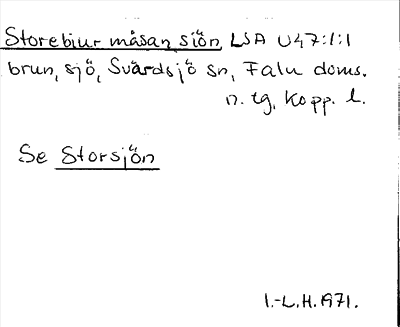 Storebiur måsan siön, LSA U47:1:1
brun, sjö, Svärdsjö sn, Falu doms.
n. tg, Kopp. l.
Se Storsjön
I.-L.H.1971.